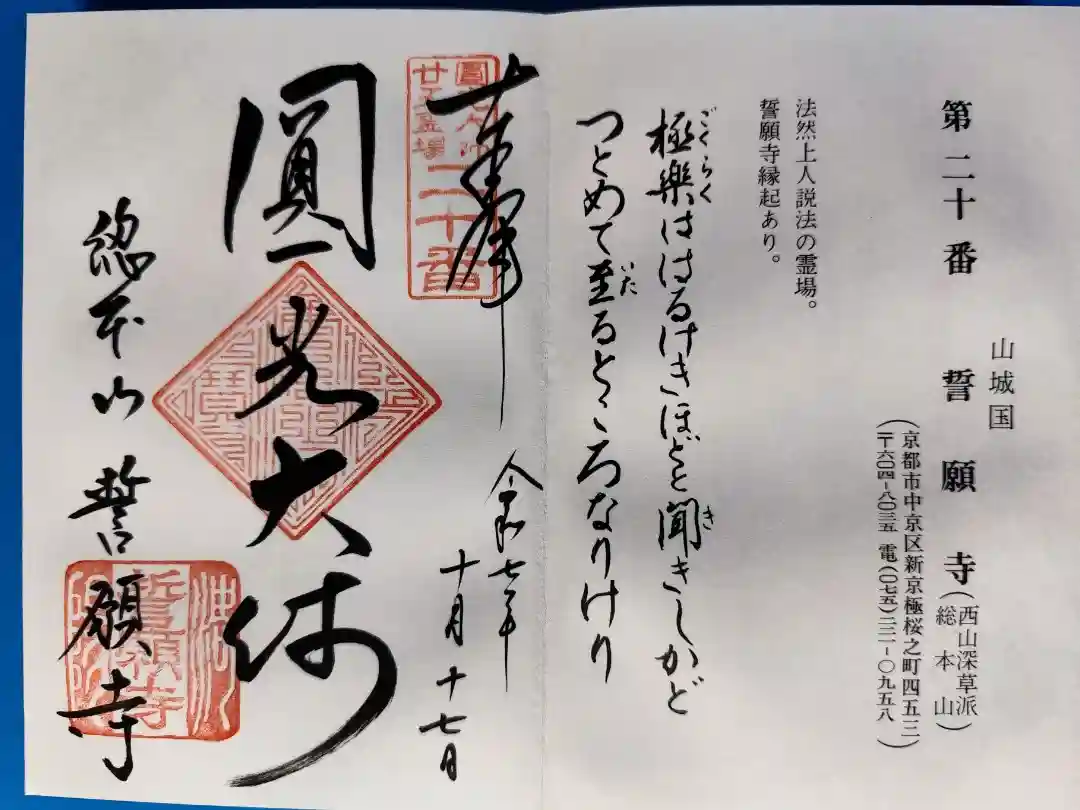 山城国
第二十番 誓願寺(西山深草派総本山)
(京都市中京区新京極桜之町四五三)
(〒六〇四-八〇三五 電(〇七五)二二一-〇九五八)
法然上人説法の霊場。
誓願寺縁起あり。
極樂ははるけきほどと聞きしかど
ごくらく
き
つとめて至るところなりけり
いた
奉拝
二十番
令和七年
十月十七日
圓光大師
総本山 誓願寺
誓願寺